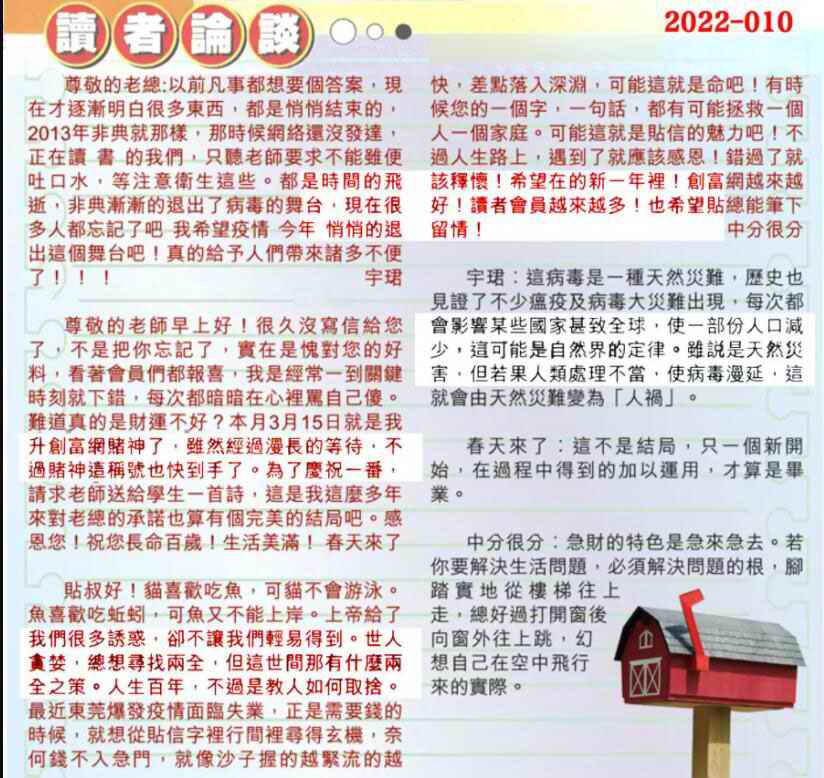 讀者論談
2022-010
尊敬的老總:以前凡事都想要個答案，現
在才逐漸明白很多東西，都是悄悄結束的，
2013年非典就那樣，那時候網絡還沒發達，
正在讀 書 的我們，只聽老師要求不能雖便
吐口水，等注意衛生這些。都是時間的飛
逝，非典漸漸的退出了病毒的舞台，現在很
多人都忘記了吧 我希望疫情 今年 悄悄的退
出這個舞台吧！真的給予人們帶來諸多不便
了！！！ 宇珺
尊敬的老師早上好！很久沒寫信給您
了，不是把你忘記了，實在是愧對您的好
料，看著會員們都報喜，我是經常一到關鍵
時刻就下錯，每次都暗暗在心裡罵自己傻。
難道真的是財運不好？本月3月15日就是我
升創富網賭神了，雖然經過漫長的等待，不
過賭神這稱號也快到手了。為了慶祝一番，
請求老師送給學生一首詩，這是我這麼多年
來對老總的承諾也算有個完美的結局吧。感
恩您！祝您長命百歲！生活美滿！ 春天來了
貼叔好！貓喜歡吃魚，可貓不會游泳。
魚喜歡吃蚯蚓，可魚又不能上岸。上帝給了
我們很多誘惑，卻不讓我們輕易得到。世人
貪婪，總想尋找兩全，但這世間那有什麼兩
全之策。人生百年，不過是教人如何取捨。
最近東莞爆發疫情面臨失業，正是需要錢的
時候，就想從貼信字裡行間裡尋得玄機，奈
何錢不入急門，就像沙子握的越緊流的越
快，差點落入深淵，可能這就是命吧！有時
候您的一個字，一句話，都有可能拯救一個
人一個家庭。可能這就是貼信的魅力吧！不
過人生路上，遇到了就應該感恩！錯過了就
該釋懷！希望在的新一年裡！創富網越來越
好！讀者會員越來越多！也希望貼總能筆下
留情！ 中分很分
宇珺：這病毒是一種天然災難，歷史也
見證了不少瘟疫及病毒大災難出現，每次都
會影響某些國家甚致全球，使一部份人口減
少，這可能是自然界的定律。雖説是天然災
害，但若果人類處理不當，使病毒漫延，這
就會由天然災難變為「人禍」。
春天來了：這不是結局，只一個新開
始，在過程中得到的加以運用，才算是畢
業。
中分很分：急財的特色是急來急去。若
你要解決生活問題，必須解決問題的根，腳
踏實地從樓梯往上
走，總好過打開窗後
向窗外往上跳，幻
想自己在空中飛行
來的實際。